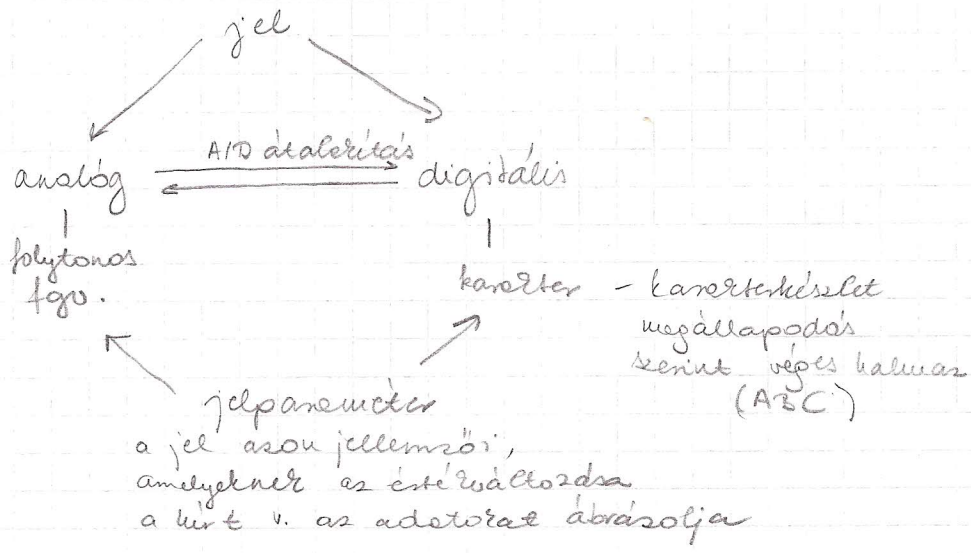 jel
A/D átalakítás
analóg
digitális
folytonos
fgv.
karakter - karakterkészlet
megállapodás
szerint véges halmaz
(ABC)
jelparaméter
a jel azon jellemzői,
amelyeknek az értékváltozása
a hírt v. az adatokat ábrázolja